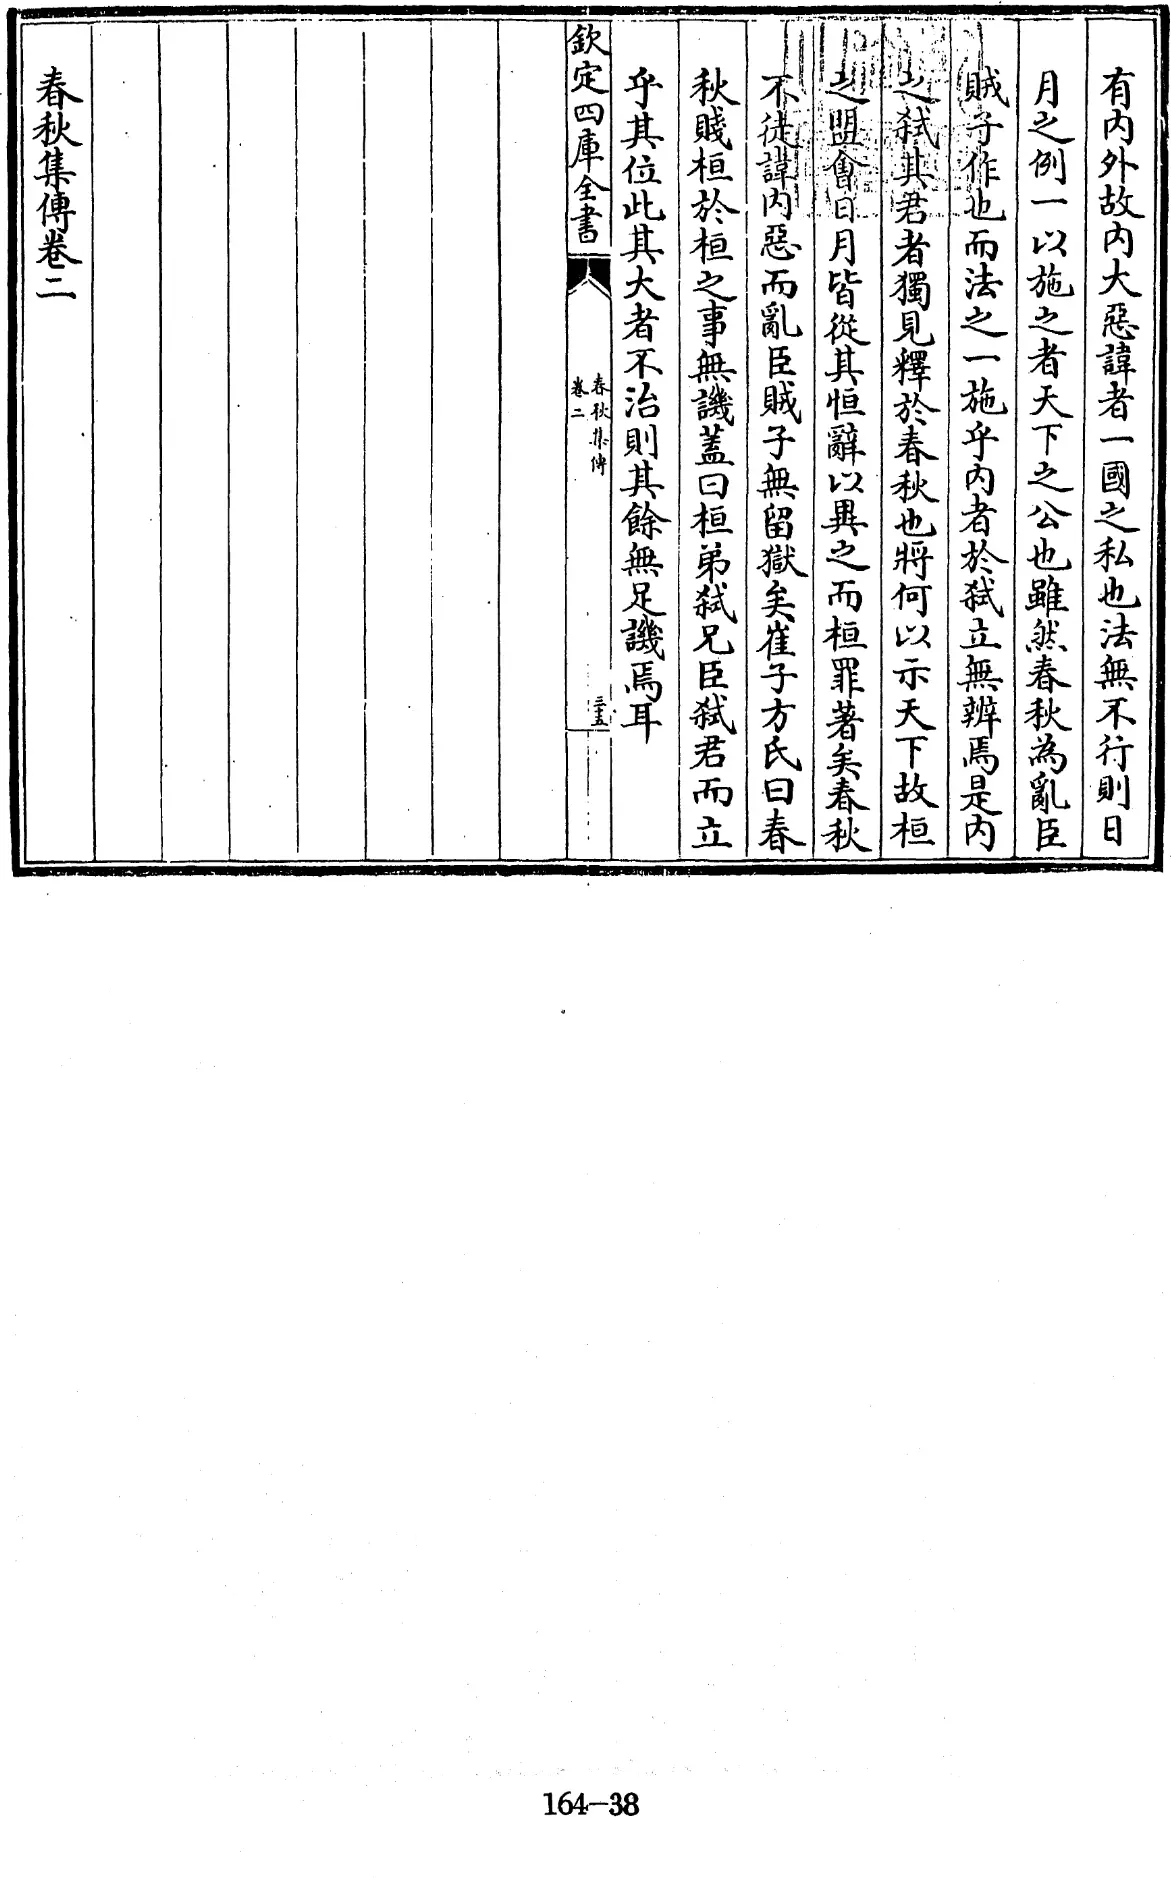 有内外故内大惡諱者一國之私也法無不行則日
月之例一以施之者天下之公也雖然春秋為亂臣
賊子作也而法之一施乎内者於弑立無辨焉是内
之弑其君者獨見釋於春秋也將何以示天下故桓
之盟會日月皆從其恒辭以異之而桓罪著矣春秋
不徒諱内惡而亂臣賊子無留獄矣崔子方氏曰春
秋賤桓於桓之事無譏蓋曰桓弟弑兄臣弑君而立
乎其位此其大者不治則其餘無足譏焉耳
欽定四庫全書
春秋集傳
卷二
三五
春秋集傳卷二
164-38